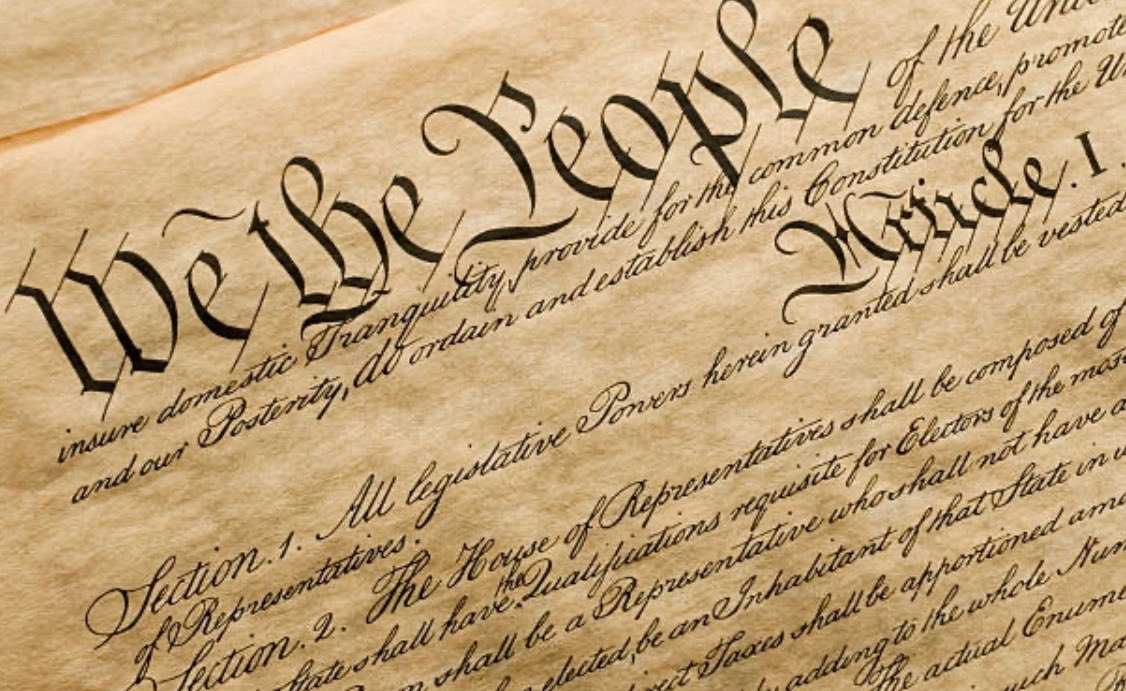 We the People of the Unit
insure domestic Tranquility, provide for the common defence, promote
and our Posterity, do ordain and establish this Constitution for the Un
Article. I.
Section. 1. All legislative Powers herein granted shall be vested
of Representatives.
Section. 2. The House of Representatives shall be composed of
State shall have the Qualifications requisite for Electors of the most
shall be a Representative who shall not have a
elected, be an Inhabitant of that State in w
rect Taxes shall be apportioned amo
by adding to the whole Num
The actual Enume
such Man